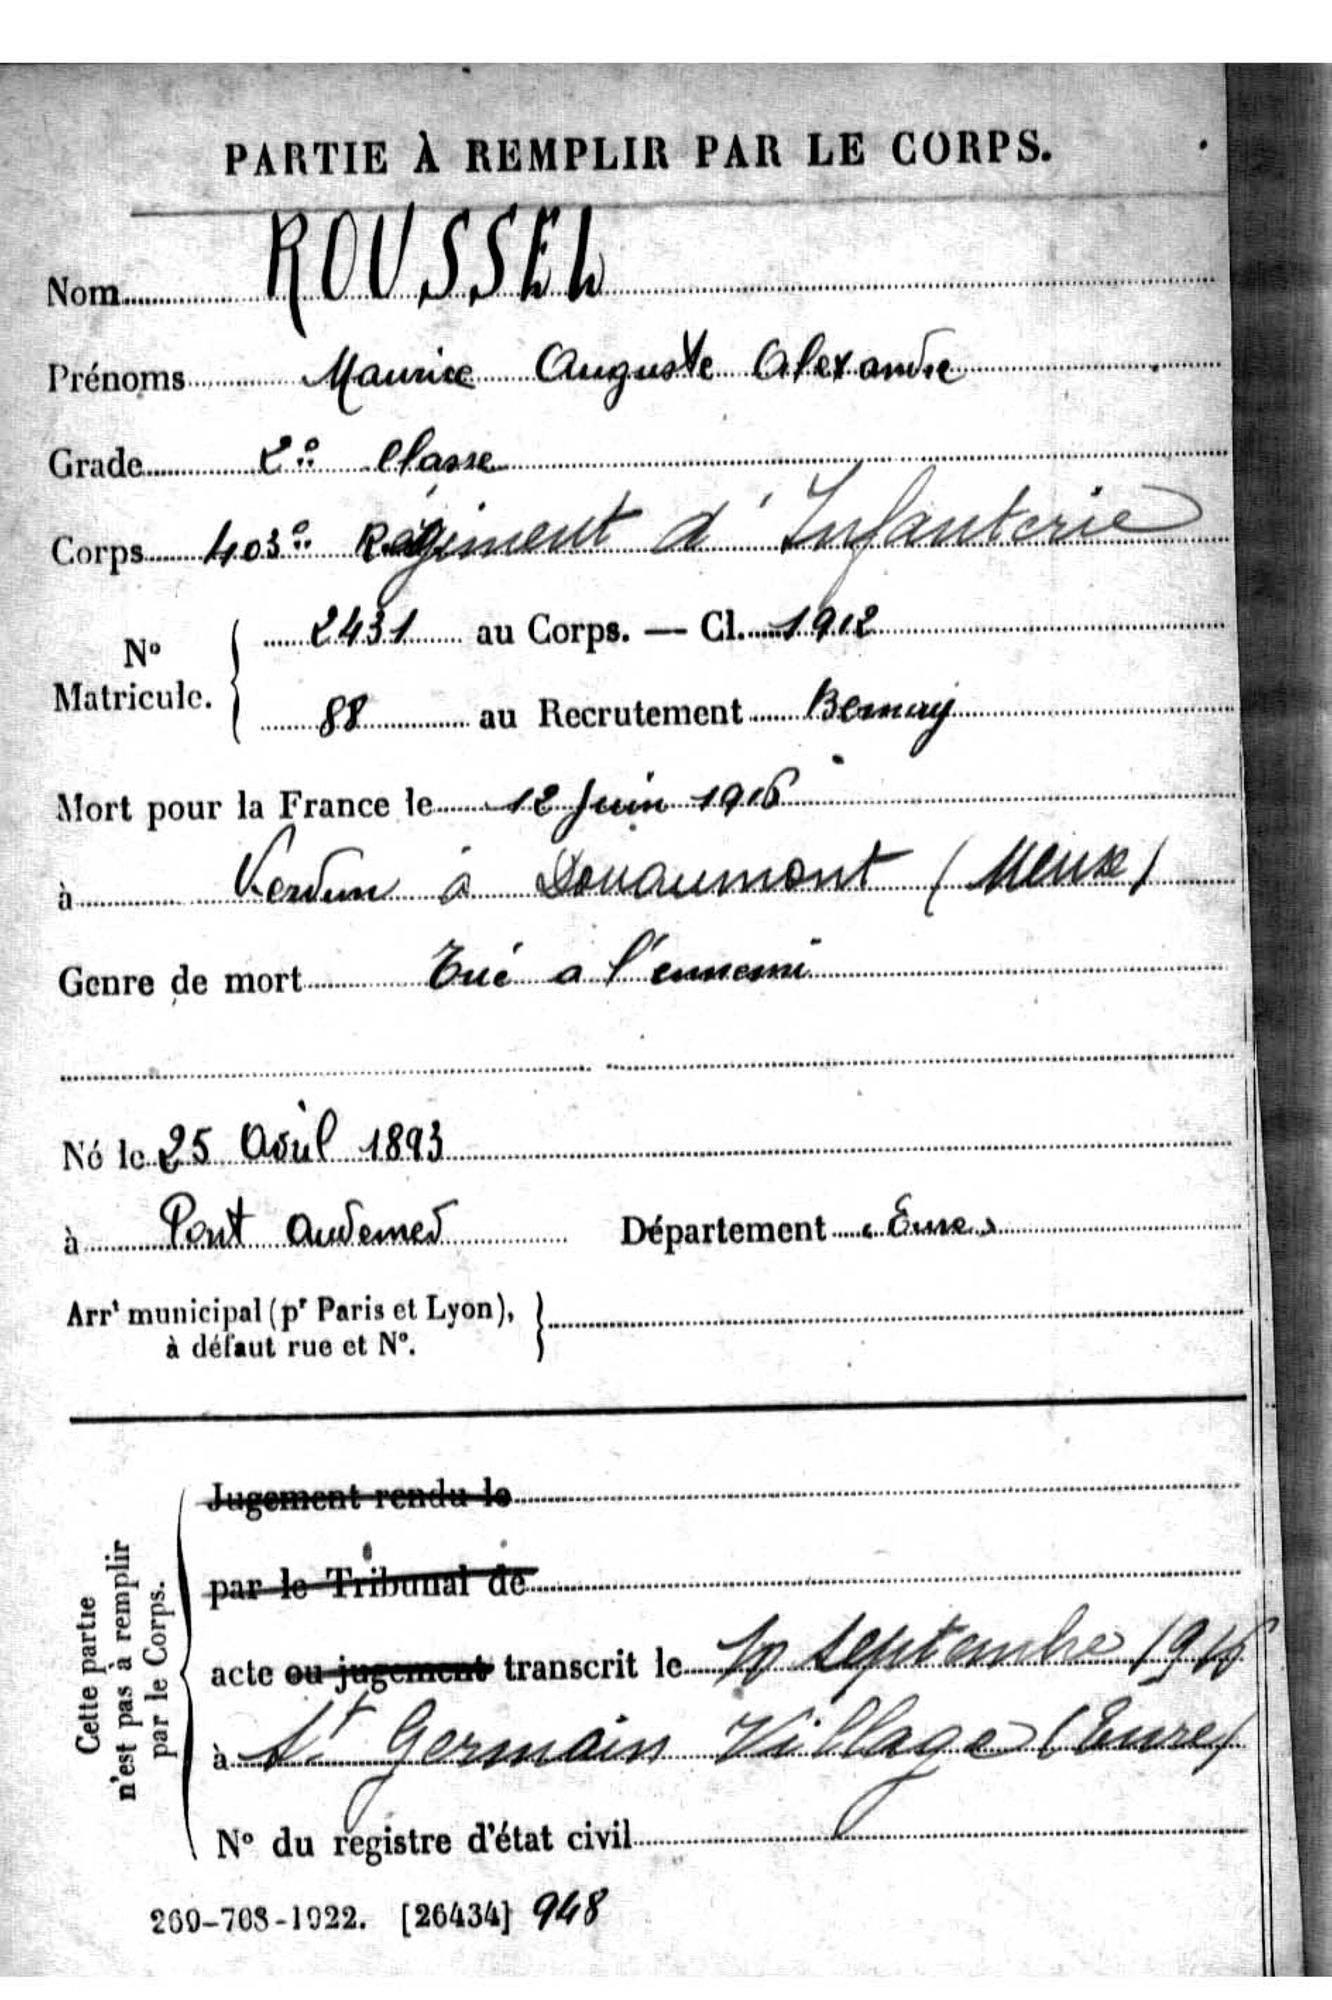 PARTIE À REMPLIR PAR LE CORPS.
Nom ROUSSEL
Prénoms Maurice Auguste Alexandre
Grade 2e Classe
Corps 403e Régiment d'Infanterie
No Matricule. { 2431 au Corps. — Cl. 1912
88 au Recrutement Bernay
Mort pour la France le 12 Juin 1916
à Verdun à Douaumont (Meuse)
Genre de mort Tué a l'ennemi
Né le 25 Avril 1893
à Pont Audemer Département (Eure)
Arrt municipal (pr Paris et Lyon), }
à défaut rue et No.
Cette partie
n'est pas à remplir
par le Corps.
Jugement rendu le
par le Tribunal de
acte ou jugement transcrit le 10 septembre 1916
à St Germain Village (Eure)
No du registre d'état civil
269-708-1922. [26434] 948